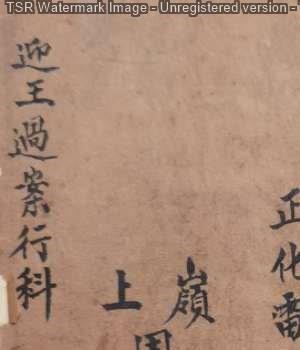 TSR Watermark Image - Unregistered version -
迎王過案行科
正化雷
嶺
上